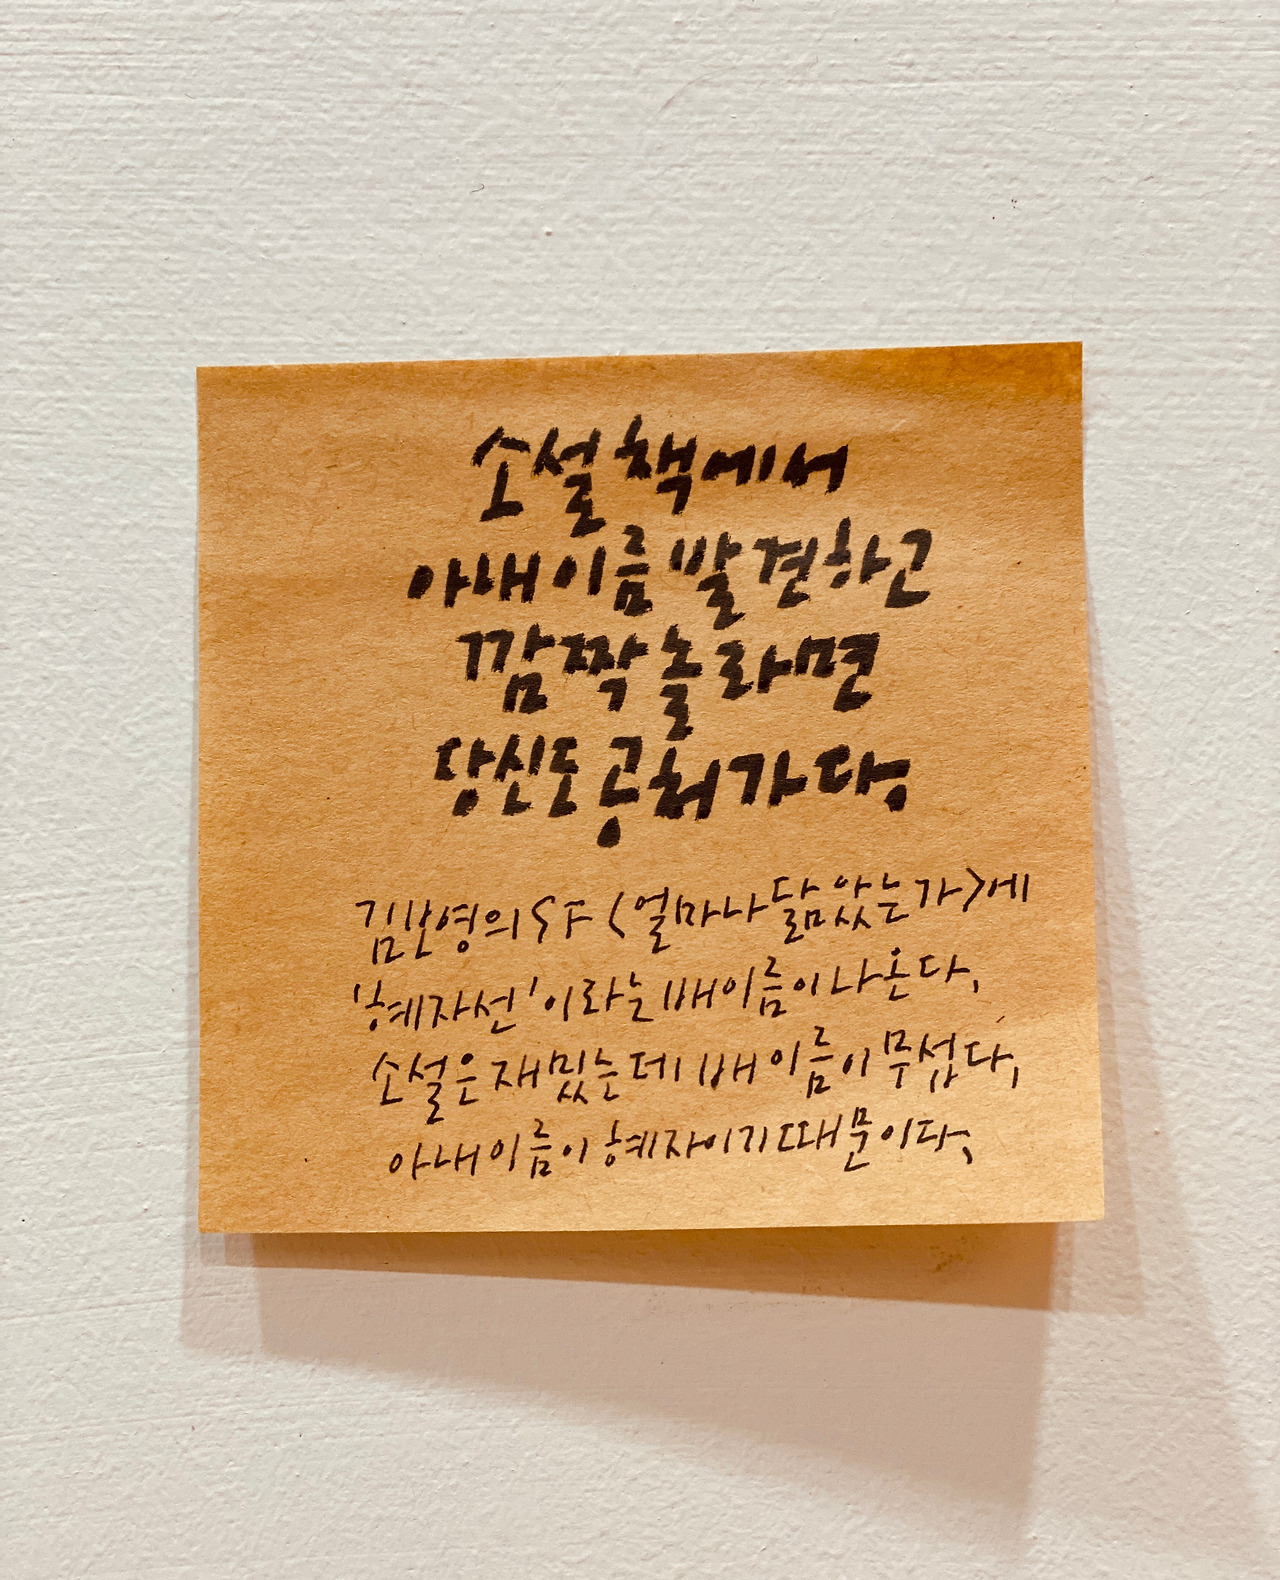 소설책에서
아내 이름 발견하고
깜짝 놀라면
당신도 공처가다.
김보영의 SF <얼마나 닮았는가>에
'혜자선'이라는 배 이름이 나온다.
소설은 재밌는데 배 이름이 무섭다.
아내 이름이 혜자이기 때문이다.